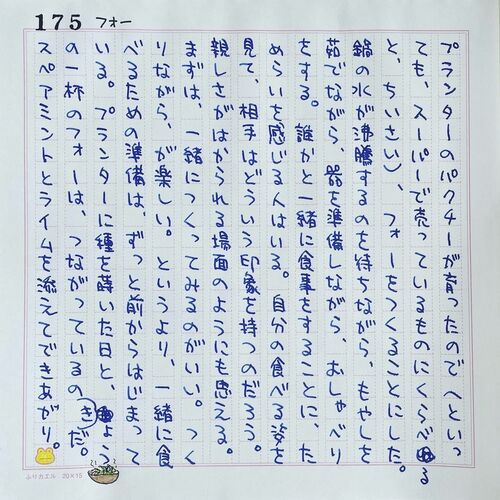 175 フォー
プランターのパクチーが育ったので(といっ
ても、スーパーで売っているものにくらべる
と、ちいさい)、フォーをつくることにした。
鍋の水が沸騰するのを待ちながら、もやしを
茹でながら、器を準備しながら、おしゃべり
をする。誰かと一緒に食事をすることに、た
めらいを感じる人はいる。自分の食べる姿を
見て、相手はどういう印象を持つのだろう。
親しさがはかられる場面のようにも思える。
まずは、一緒につくってみるのがいい。つく
りながら、が楽しい。というより、一緒に食
べるための準備は、ずっと前からはじまって
いる。プランターに種を蒔いた日と、きょう
の一杯のフォーは、つながっているのだ。
スペアミントとライムを添えてできあがり。
ふりカエル 20×15